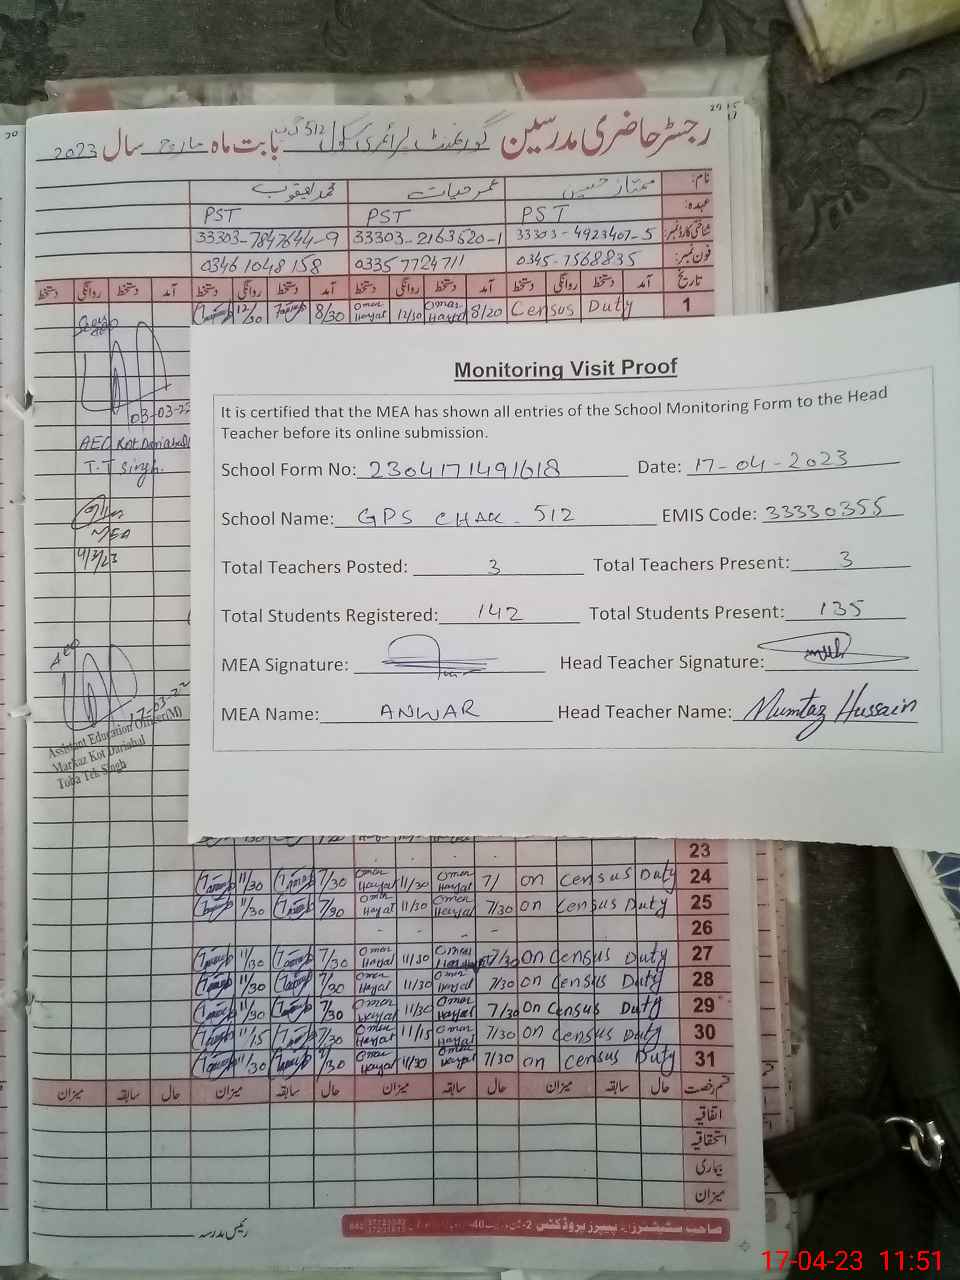 رجسٹر حاضری مدرسین گورنمنٹ پرائمری سکول 512 گ ب بابت ماہ مارچ سال 2023
نام: ممتاز حسین عمر حیات محمد یعقوب
عہدہ: PST PST PST
شناختی کارڈ نمبر: 33303-4923407-5 33303-2163520-1 33303-7847644-9
فون نمبر: 0345-7568835 03357724711 03461048158
تاریخ آمد دستخط روانگی دستخط آمد دستخط روانگی دستخط آمد دستخط روانگی دستخط آمد دستخط روانگی دستخط
1 Census Duty 8/20 Omar Hayat 12/30 Omar Hayat 8/30 12/30
03-03-22
AEO Kot Dariabal
T.T Singh.
MEA
4/3/23
AEO
17-03-22
Assistant Education Officer(M)
Markaz Kot Dariabal
Toba Tek Singh
Monitoring Visit Proof
It is certified that the MEA has shown all entries of the School Monitoring Form to the Head
Teacher before its online submission.
School Form No: 2304171491618 Date: 17-04-2023
School Name: GPS CHAK 512 EMIS Code: 33330355
Total Teachers Posted: 3 Total Teachers Present: 3
Total Students Registered: 142 Total Students Present: 135
MEA Signature: Head Teacher Signature:
MEA Name: ANWAR Head Teacher Name: Mumtaz Hussain
23
11/30 7/30 Omar Hayat 11/30 Omar Hayat 7/ on Census Duty 24
11/30 7/30 Omar Hayat 11/30 Omar Hayat 7/30 on Census Duty 25
26
11/30 7/30 Omar Hayat 11/30 Omar 7/30 on Census Duty 27
11/30 7/30 Omar Hayat 11/30 Omar Hayat 7/30 on Census Duty 28
11/30 7/30 Omar Hayat 11/30 Omar Hayat 7/30 on Census Duty 29
11/15 7/30 Omar Hayat 11/15 Omar Hayat 7/30 on Census Duty 30
11/30 7/30 Omar Hayat 11/30 Omar Hayat 7/30 on Census Duty 31
قسم رخصت حال سابقہ میزان حال سابقہ میزان حال سابقہ میزان حال سابقہ میزان
اتفاقیہ
استحقاقیہ
بیماری
میزان
رئیس مدرسہ
صاحب سٹیشنرز اینڈ پیپرز پروڈکٹس
17-04-23 11:51